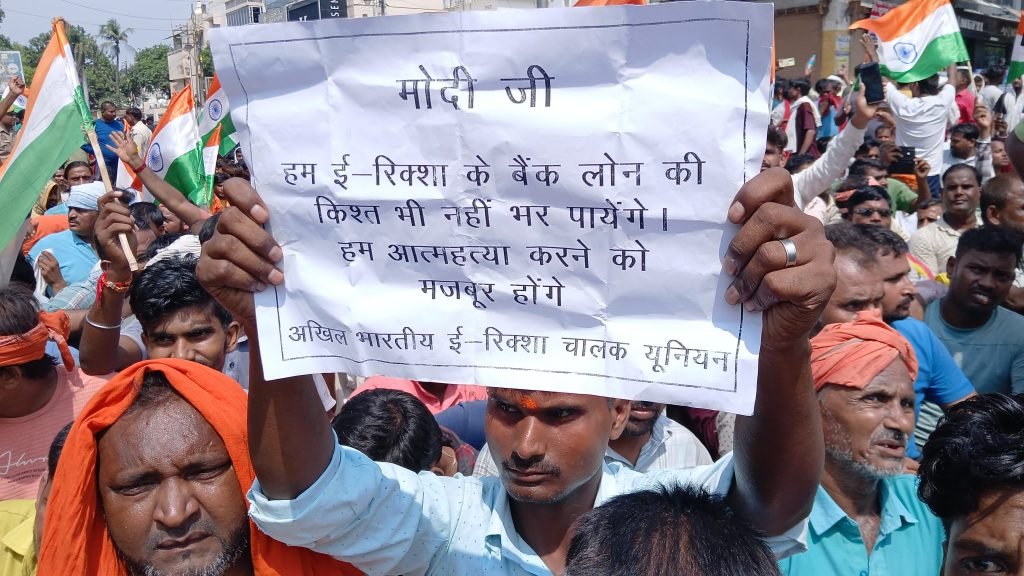 मोदी जी
हम ई-रिक्शा के बैंक लोन की
किश्त भी नहीं भर पायेंगे।
हम आत्महत्या करने को
मजबूर होंगे
अखिल भारतीय ई-रिक्शा चालक यूनियन